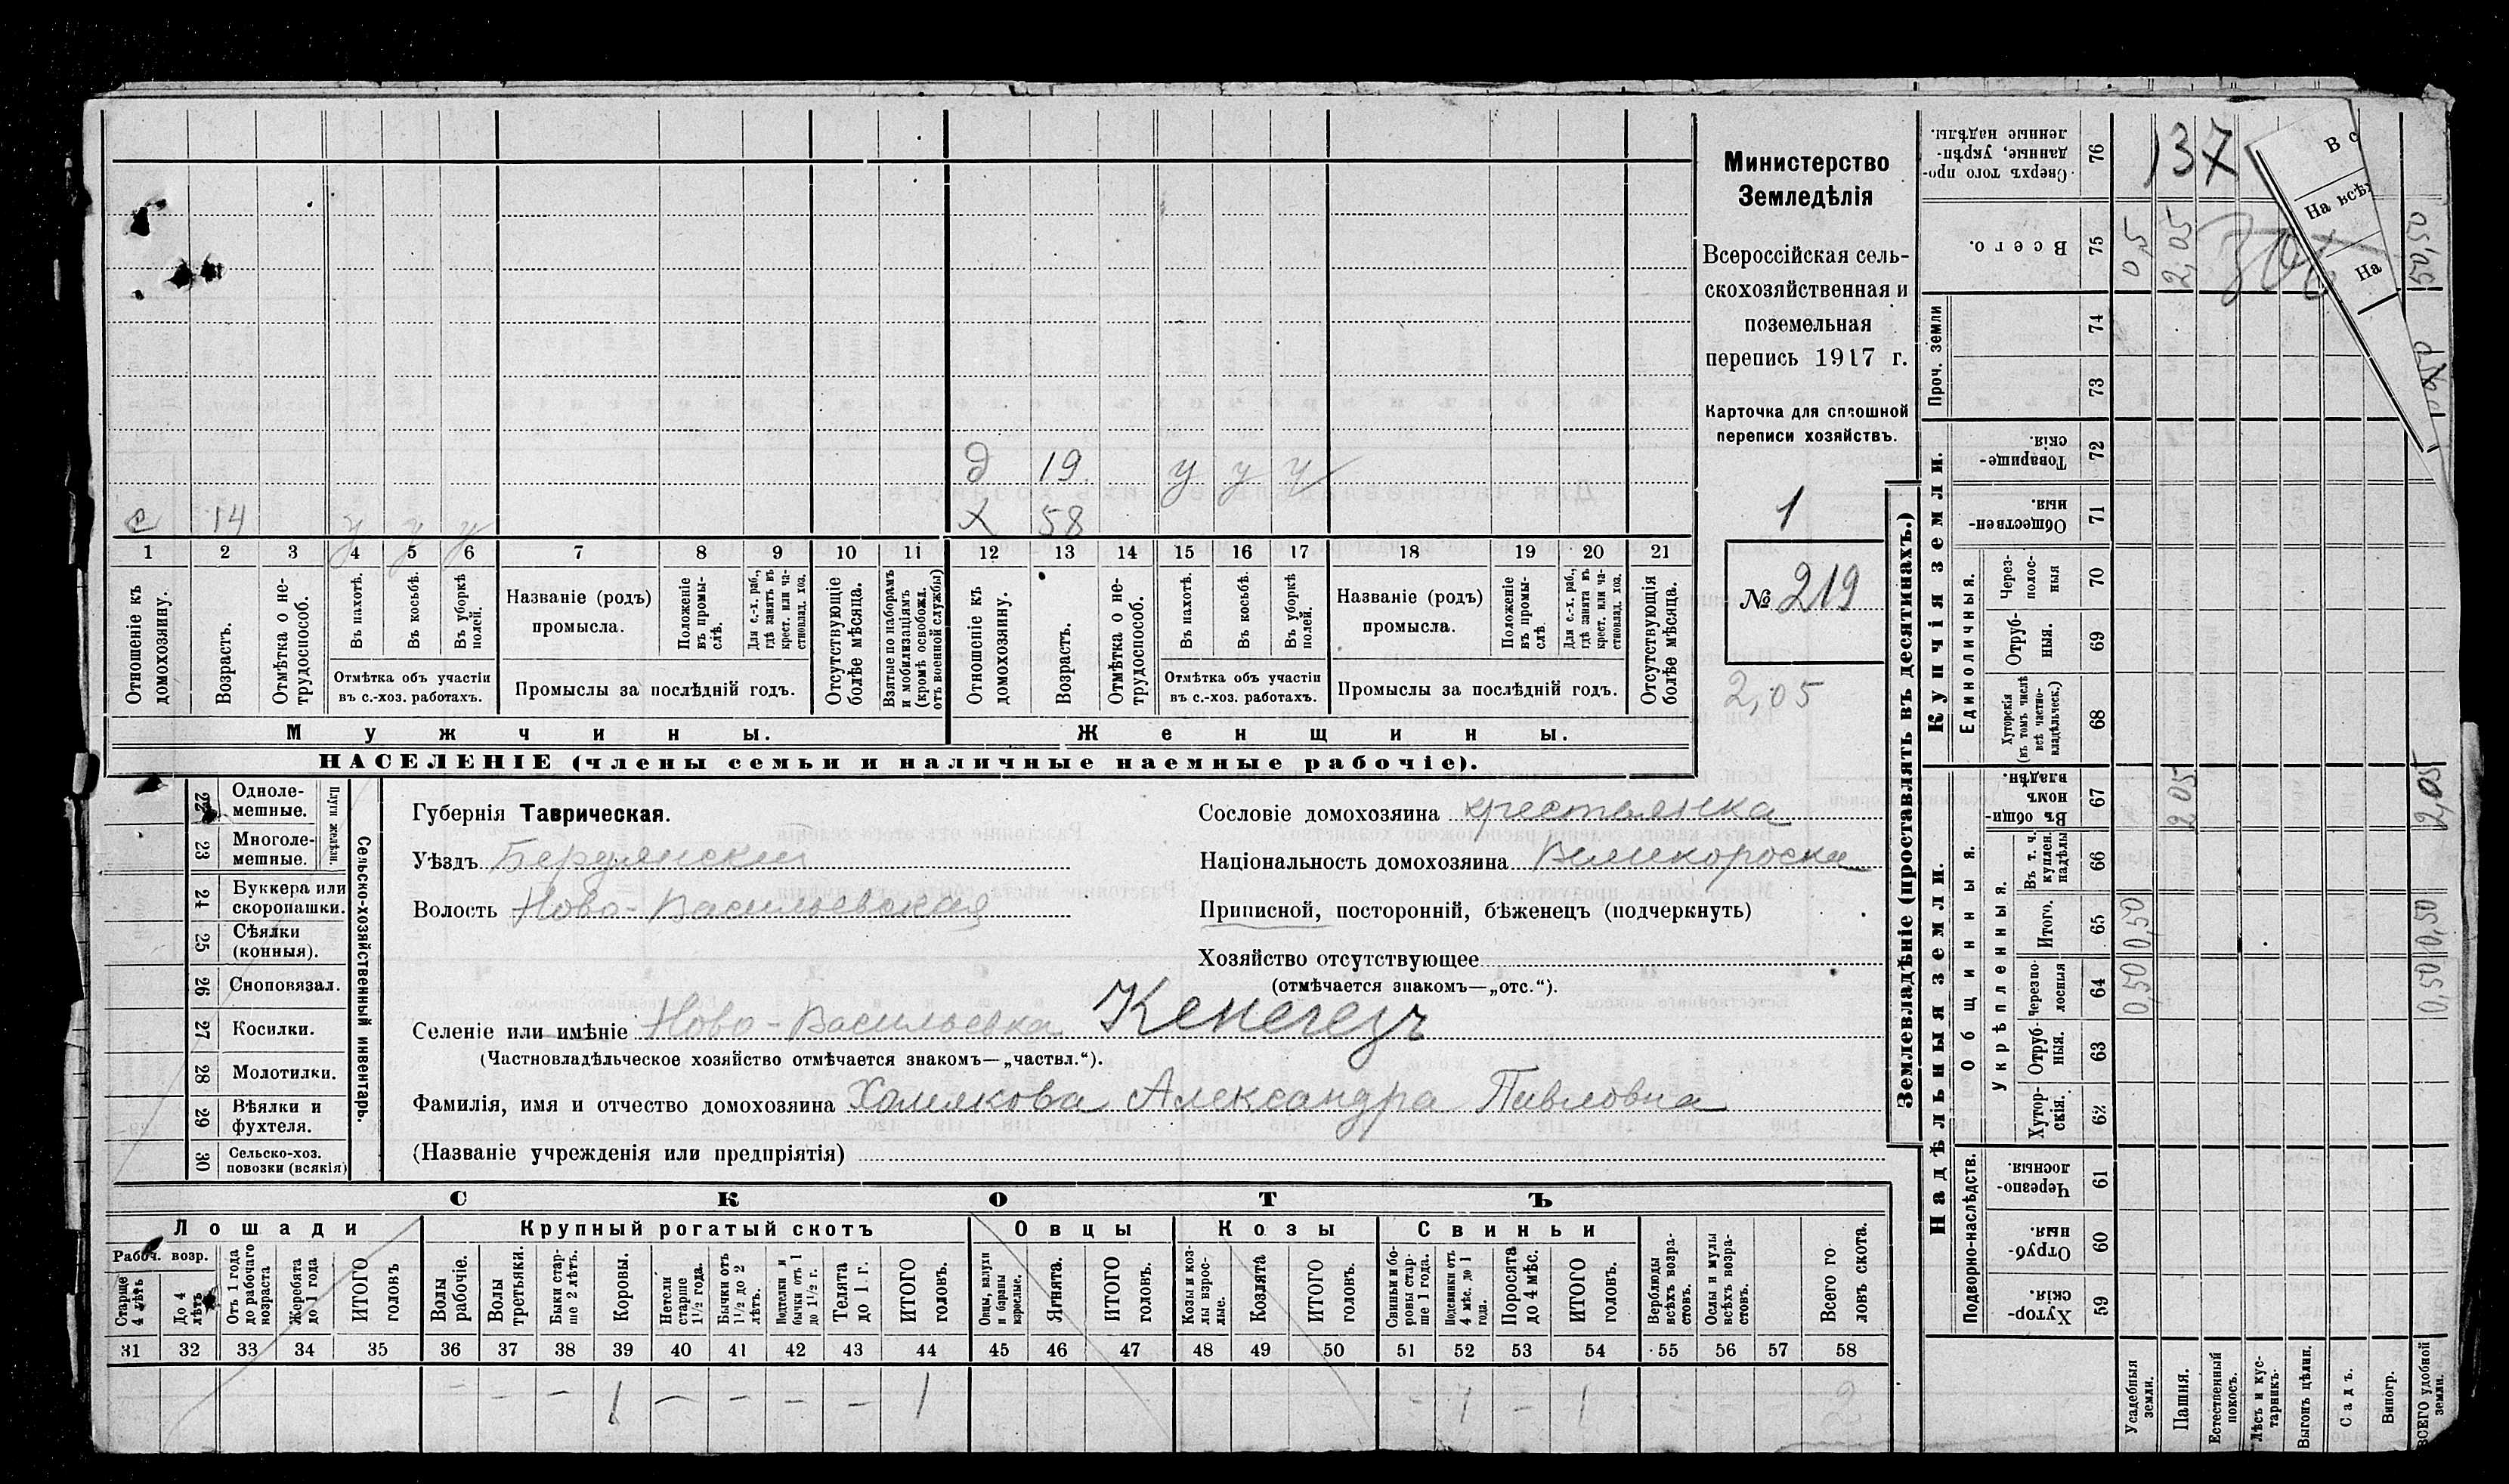 Министерство
Земледѣлія
Всероссійская сель-
скохозяйственная и
поземельная
перепись 1917 г.
Карточка для сплошной
переписи хозяйствъ.
1
№ 219
2,05
д 19. у у у
с 14 у у у х 58
1 2 3 4 5 6 7 8 9 10 11 12 13 14 15 16 17 18 19 20 21
Отношеніе къ домохозяину.
Возрастъ.
Отмѣтка о не-трудоспособ.
Въ пахотѣ.
Въ косьбѣ.
Въ уборкѣ полей.
Отмѣтка объ участіи
въ с.-хоз. работахъ.
Названіе (родъ)
промысла.
Положеніе въ промы-слѣ.
Для с.-х. раб., гдѣ занятъ въ крест. или ча-стновлад. хоз.
Промыслы за послѣдній годъ.
Отсутствующіе болѣе мѣсяца.
Взятые по наборамъ и мобилизаціямъ (кромѣ освобожд. отъ военной службы)
Отношеніе къ домохозяину.
Возрастъ.
Отмѣтка о не-трудоспособ.
Въ пахотѣ.
Въ косьбѣ.
Въ уборкѣ полей.
Отмѣтка объ участіи
въ с.-хоз. работахъ.
Названіе (родъ)
промысла.
Положеніе въ промы-слѣ.
Для с.-х. раб., гдѣ занята въ крест. или ча-стновлад. хоз.
Промыслы за послѣдній годъ.
Отсутствующія болѣе мѣсяца.
Мужчины. Женщины.
НАСЕЛЕНІЕ (члены семьи и наличные наемные рабочіе).
Сельско-хозяйственный инвентарь.
Плуги желѣзн.
22 Одноле-мешные.
23 Многоле-мешные.
24 Буккера или скоропашки.
25 Сѣялки (конныя).
26 Сноповязал.
27 Косилки.
28 Молотилки.
29 Вѣялки и фухтеля.
30 Сельско-хоз. повозки (всякія)
Губернія Таврическая.
Уѣздъ Бердянский
Волость Ново-Васильевская
Сословіе домохозяина крестьянка
Національность домохозяина Великоросска
Приписной, посторонній, бѣженецъ (подчеркнуть)
Хозяйство отсутствующее
(отмѣчается знакомъ—„отс.“).
Селеніе или имѣніе Ново-Васильевка Кенегезъ
(Частновладѣльческое хозяйство отмѣчается знакомъ—„частвл.“).
Фамилія, имя и отчество домохозяина Хомякова Александра Павловна
(Названіе учрежденія или предпріятія)
СКОТЪ
Лошади Крупный рогатый скотъ Овцы Козы Свиньи
Рабоч. возр.
Старше 4 лѣтъ
До 4 лѣтъ
Отъ 1 года до рабочаго возраста
Жеребята до 1 года
ИТОГО головъ
Волы рабочіе.
Волы третьяки.
Быки стар-ше 2 лѣтъ.
Коровы.
Нетели старше 1½ года.
Бычки отъ 1½ до 2 лѣтъ.
Подтелки и бычки отъ 1 до 1½ г.
Телята до 1 г.
ИТОГО головъ.
Овцы, валухи и бараны взрослые.
Ягнята.
ИТОГО головъ.
Козы и коз-лы взрос-лые.
Козлята
ИТОГО головъ.
Свиньи и бо-ровы стар-ше 1 года.
Подсвинки отъ 4 мѣс. до 1 года.
Поросята до 4 мѣс.
ИТОГО головъ.
Верблюды всѣхъ возра-стовъ.
Ослы и мулы всѣхъ возра-стовъ.
Всего го-ловъ скота.
31 32 33 34 35 36 37 38 39 40 41 42 43 44 45 46 47 48 49 50 51 52 53 54 55 56 57 58
– – – 1 – – – – 1 – 1 – 1 – – 2
Землевладѣніе (проставлять въ десятинахъ.)
Купчія земли.
Надѣльныя земли.
76 Сверхъ того про-данные, укрѣп-ленные надѣлы. 137
75 Всего. 0,5 2,05 50,50
Проч. земли
74
73
72 Товарище-скія.
71 Обществен-ныя
Единоличныя.
70 Через-полос-ныя
69 Отруб-ныя.
68 Хуторскія (въ томъ числѣ всѣ частно-владѣльческ.)
Общинныя.
67 Въ общин-номъ владѣн. 2,05 2,05
Укрѣпленныя.
66 Въ т. ч. куплен. надѣлы
65 Итого. 0,50 0,50
64 черезпо-лосныя 0,50 0,50
63 Отруб-ныя.
62 Хутор-скія.
Подворно-наслѣдств.
61 Черезпо-лосныя.
60 Отруб-ныя
59 Хутор-скія.
Усадебныя земли.
Пашня.
Естественный покосъ.
Лѣсъ и кус-тарникъ.
Выгонъ цѣлин.
Садъ.
Виногр.
ВСЕГО удобной земли.
В с
На всѣх
На